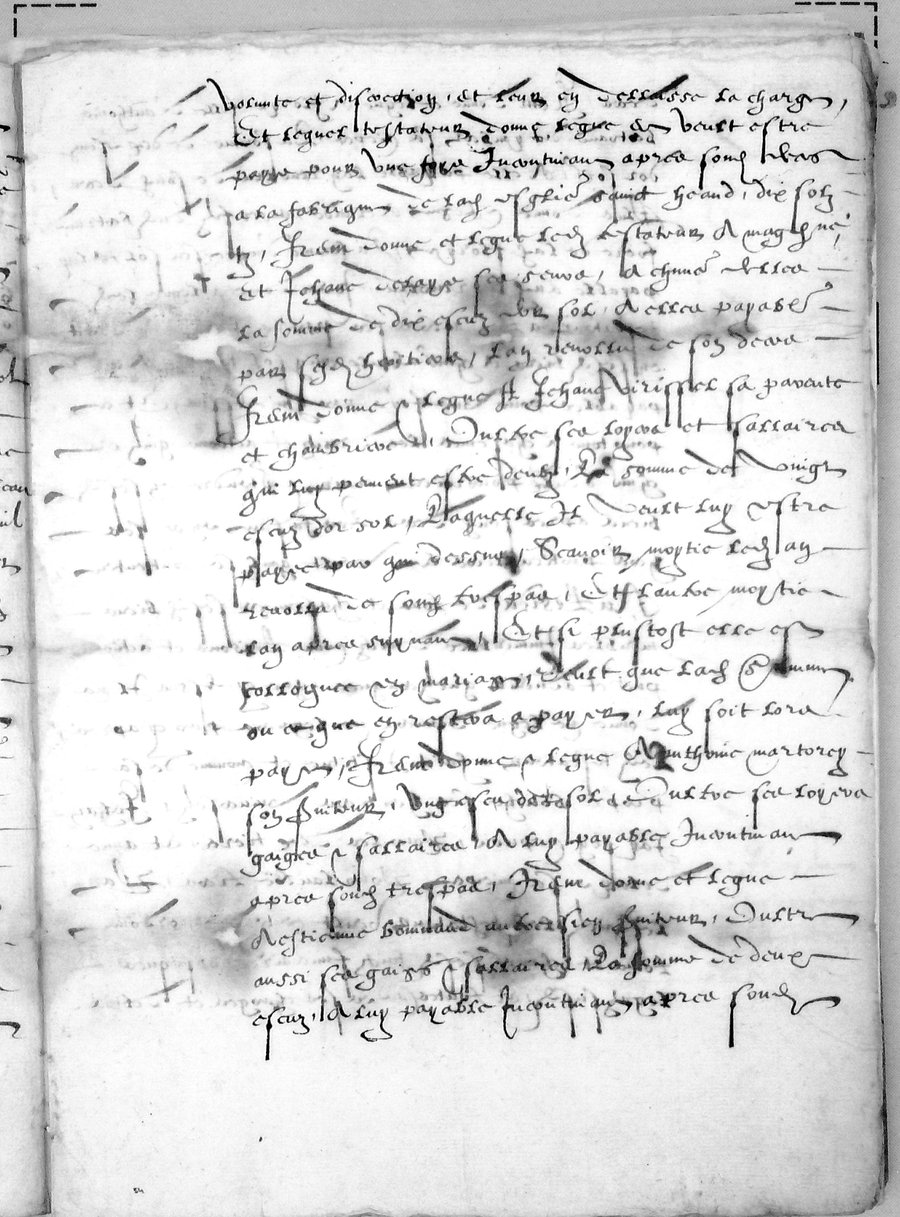 volunte et discretion, Et leur en dellaisse la charge,
Et lequel testateur donne legue et veult estre
paye pour une foys Incontinant apres sond decas
a la fabrique de lad esglise sainct heand, dix solz
tz, Item donne et legue led testateur A magd
Et Jehane ses seurs, A chune delles
la somme de dix escuz dor sol, A elles payable
par sesd heritiers, lan revollu de son deces
Item donne & legue A Jehane sa parente
et chambriere, Oultre ses loyers et sallaires
qui luy peuvent estre deubz, La somme de Vingt
escuz dor sol, Laquelle Il veult luy estre
payee par que dessus, Scavoir moytie led an
revollu de sond trespas, Et laultre moytie
lan apres suyvant, Et si plustost elle est
colloquee en mariage, Veult que lad somme
ou ce que en restera a payer, luy soit lors
payee, Item donne & legue A Anthoine martorey
son serviteur, Ung escu dor sol Oultre ses loyers
gaiges & sallaires A luy payable Incontinant
apres sond trespas, Item donne et legue
A estienne aultre sien serviteur, Oultre
aussi ses gaiges & sallaires, La somme de deux
escuz, A luy payable Incontinant apres sond